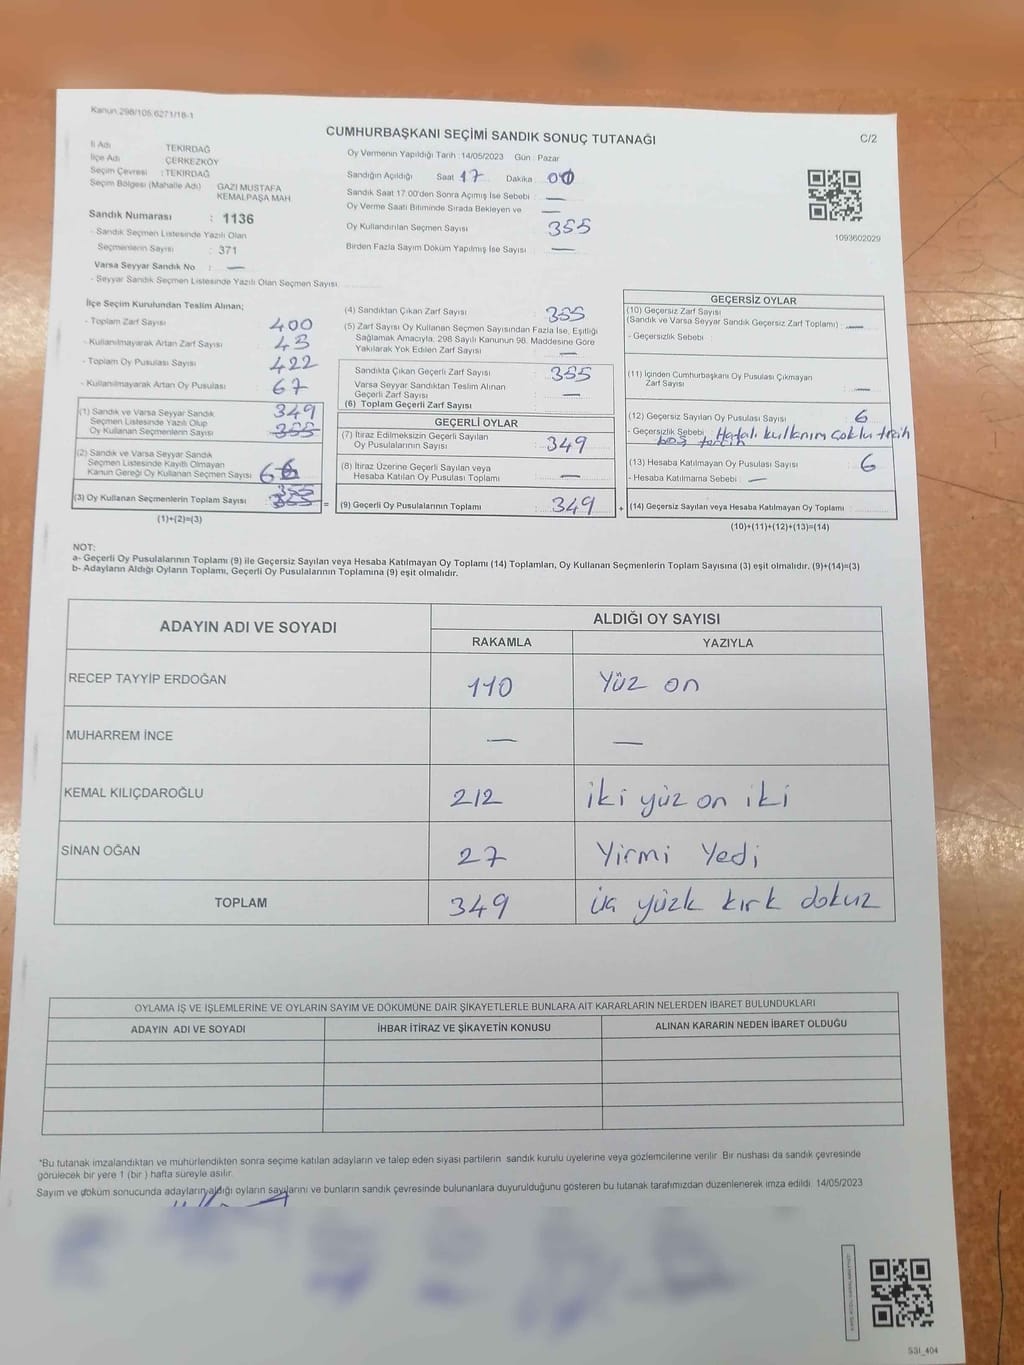 Kanun:298/105;6271/18-1
CUMHURBAŞKANI SEÇİMİ SANDIK SONUÇ TUTANAĞI
C/2
İl Adı TEKİRDAĞ
İlçe Adı ÇERKEZKÖY
Seçim Çevresi : TEKİRDAĞ
Seçim Bölgesi (Mahalle Adı) GAZİ MUSTAFA
KEMALPAŞA MAH
Sandık Numarası : 1136
- Sandık Seçmen Listesinde Yazılı Olan
Seçmenlerin Sayısı : 371
Varsa Seyyar Sandık No : —
- Seyyar Sandık Seçmen Listesinde Yazılı Olan Seçmen Sayısı
Oy Vermenin Yapıldığı Tarih : 14/05/2023 Gün : Pazar
Sandığın Açıldığı Saat 17 Dakika 00
Sandık Saat 17.00'den Sonra Açımış İse Sebebi : —
Oy Verme Saati Bitiminde Sırada Bekleyen ve —
Oy Kullandırılan Seçmen Sayısı 355
Birden Fazla Sayım Döküm Yapılmış İse Sayısı —
1093602029
İlçe Seçim Kurulundan Teslim Alınan;
- Toplam Zarf Sayısı 400
- Kullanılmayarak Artan Zarf Sayısı : 45
- Toplam Oy Pusulası Sayısı 422
- Kullanılmayarak Artan Oy Pusulası : 67
(1) Sandık ve Varsa Seyyar Sandık 349
Seçmen Listesinde Yazılı Olup
Oy Kullanan Seçmenlerin Sayısı 355
(2) Sandık ve Varsa Seyyar Sandık
Seçmen Listesinde Kayıtlı Olmayan
Kanun Gereği Oy Kullanan Seçmen Sayısı 6
(3) Oy Kullanan Seçmenlerin Toplam Sayısı 355 =
(1)+(2)=(3)
(4) Sandıktan Çıkan Zarf Sayısı : 355
(5) Zarf Sayısı Oy Kullanan Seçmen Sayısından Fazla İse, Eşitliği
Sağlamak Amacıyla, 298 Sayılı Kanunun 98. Maddesine Göre
Yakılarak Yok Edilen Zarf Sayısı —
Sandıkta Çıkan Geçerli Zarf Sayısı 355
Varsa Seyyar Sandıktan Teslim Alınan
Geçerli Zarf Sayısı —
(6) Toplam Geçerli Zarf Sayısı
GEÇERLİ OYLAR
(7) İtiraz Edilmeksizin Geçerli Sayılan
Oy Pusulalarının Sayısı 349
(8) İtiraz Üzerine Geçerli Sayılan veya
Hesaba Katılan Oy Pusulası Toplamı —
(9) Geçerli Oy Pusulalarının Toplamı : 349 +
GEÇERSİZ OYLAR
(10) Geçersiz Zarf Sayısı
(Sandık ve Varsa Seyyar Sandık Geçersiz Zarf Toplamı) : —
- Geçersizlik Sebebi :
(11) İçinden Cumhurbaşkanı Oy Pusulası Çıkmayan
Zarf Sayısı —
(12) Geçersiz Sayılan Oy Pusulası Sayısı 6
- Geçersizlik Sebebi : Hatalı kullanım çoklu tercih
boş tercih
(13) Hesaba Katılmayan Oy Pusulası Sayısı 6
- Hesaba Katılmama Sebebi : —
(14) Geçersiz Sayılan veya Hesaba Katılmayan Oy Toplamı :
(10)+(11)+(12)+(13)=(14)
NOT:
a- Geçerli Oy Pusulalarının Toplamı (9) ile Geçersiz Sayılan veya Hesaba Katılmayan Oy Toplamı (14) Toplamları, Oy Kullanan Seçmenlerin Toplam Sayısına (3) eşit olmalıdır. (9)+(14)=(3)
b- Adayların Aldığı Oyların Toplamı, Geçerli Oy Pusulalarının Toplamına (9) eşit olmalıdır.
ADAYIN ADI VE SOYADI
ALDIĞI OY SAYISI
RAKAMLA YAZIYLA
RECEP TAYYİP ERDOĞAN 110 Yüz on
MUHARREM İNCE — —
KEMAL KILIÇDAROĞLU 212 iki yüz on iki
SİNAN OĞAN 27 Yirmi Yedi
TOPLAM 349 üç yüzk kırk dokuz
OYLAMA İŞ VE İŞLEMLERİNE VE OYLARIN SAYIM VE DÖKÜMÜNE DAİR ŞİKAYETLERLE BUNLARA AİT KARARLARIN NELERDEN İBARET BULUNDUKLARI
ADAYIN ADI VE SOYADI İHBAR İTİRAZ VE ŞİKAYETİN KONUSU ALINAN KARARIN NEDEN İBARET OLDUĞU
*Bu tutanak imzalandıktan ve mühürlendikten sonra seçime katılan adayların ve talep eden siyasi partilerin sandık kurulu üyelerine veya gözlemcilerine verilir. Bir nushası da sandık çevresinde
görülecek bir yere 1 (bir ) hafta süreyle asılır.
Sayım ve döküm sonucunda adayların aldığı oyların sayılarını ve bunların sandık çevresinde bulunanlara duyurulduğunu gösteren bu tutanak tarafımızdan düzenlenerek imza edildi. 14/05/2023
SSI_404